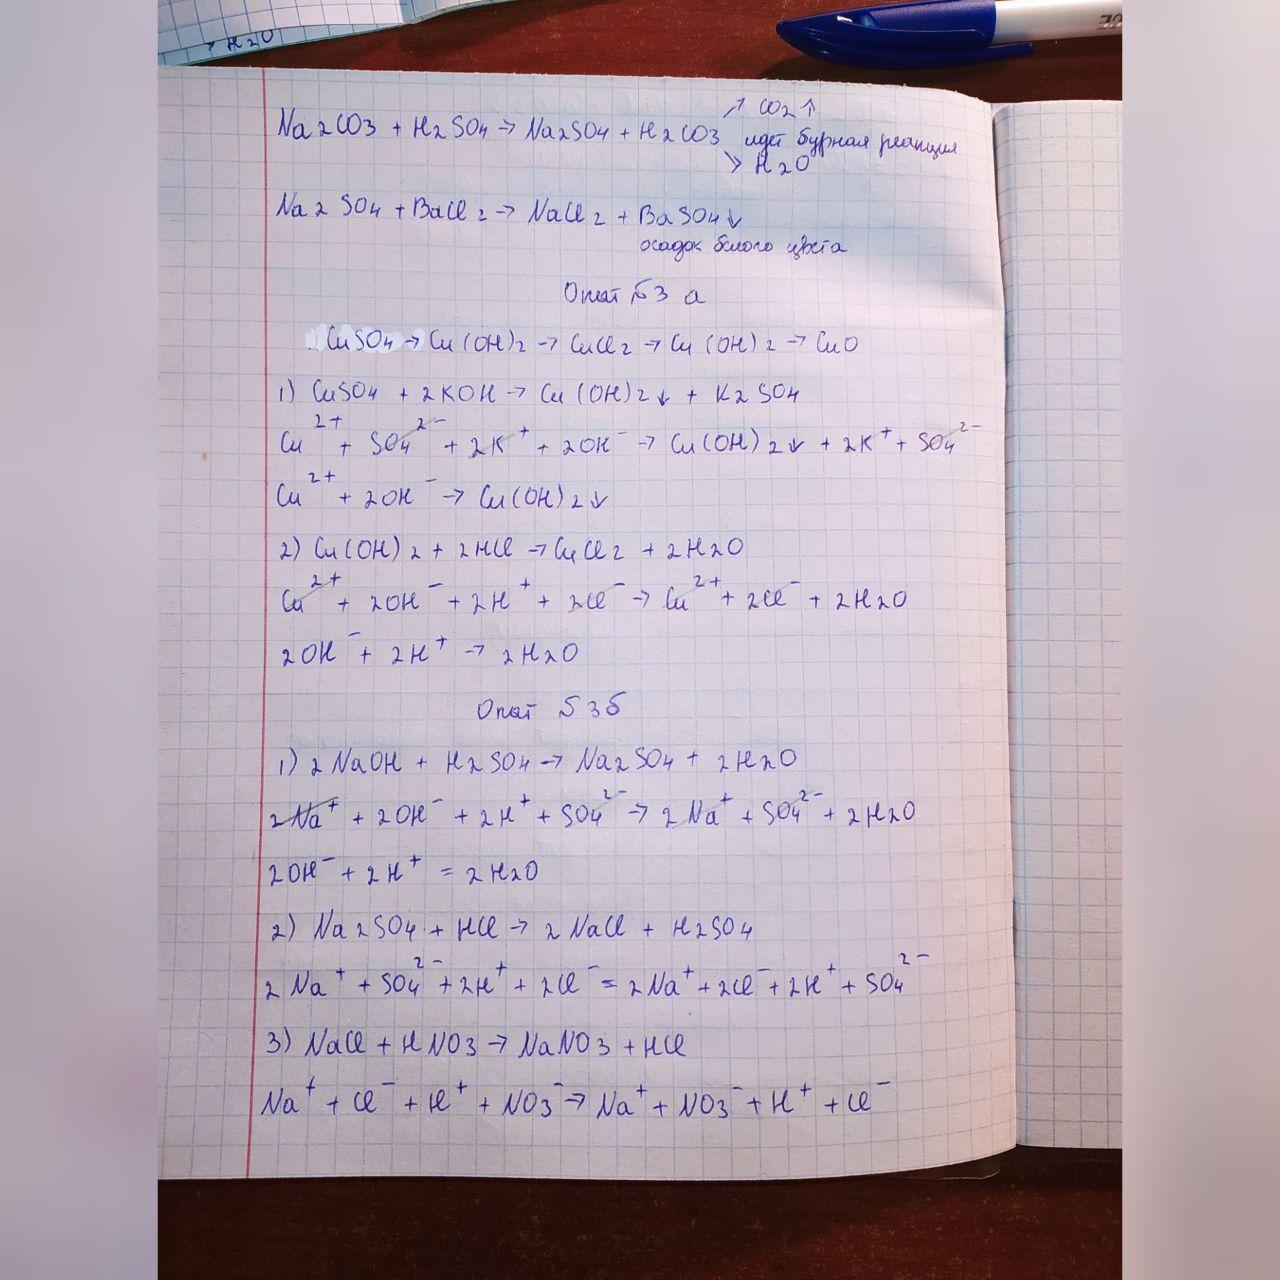 → H2O
Na2CO3 + H2SO4 → Na2SO4 + H2CO3 ↗ CO2↑ идет бурная реакция
↘ H2O
Na2SO4 + BaCl2 → NaCl2 + BaSO4↓
осадок белого цвета
Опыт №3 а
CuSO4 → Cu(OH)2 → CuCl2 → Cu(OH)2 → CuO
1) CuSO4 + 2KOH → Cu(OH)2↓ + K2SO4
Cu²⁺ + SO4²⁻ + 2K⁺ + 2OH⁻ → Cu(OH)2↓ + 2K⁺ + SO4²⁻
Cu²⁺ + 2OH⁻ → Cu(OH)2↓
2) Cu(OH)2 + 2HCl → CuCl2 + 2H2O
Cu²⁺ + 2OH⁻ + 2H⁺ + 2Cl⁻ → Cu²⁺ + 2Cl⁻ + 2H2O
2OH⁻ + 2H⁺ → 2H2O
Опыт №3б
1) 2NaOH + H2SO4 → Na2SO4 + 2H2O
2Na⁺ + 2OH⁻ + 2H⁺ + SO4²⁻ → 2Na⁺ + SO4²⁻ + 2H2O
2OH⁻ + 2H⁺ = 2H2O
2) Na2SO4 + HCl → 2NaCl + H2SO4
2Na⁺ + SO4²⁻ + 2H⁺ + 2Cl⁻ = 2Na⁺ + 2Cl⁻ + 2H⁺ + SO4²⁻
3) NaCl + HNO3 → NaNO3 + HCl
Na⁺ + Cl⁻ + H⁺ + NO3⁻ → Na⁺ + NO3⁻ + H⁺ + Cl⁻